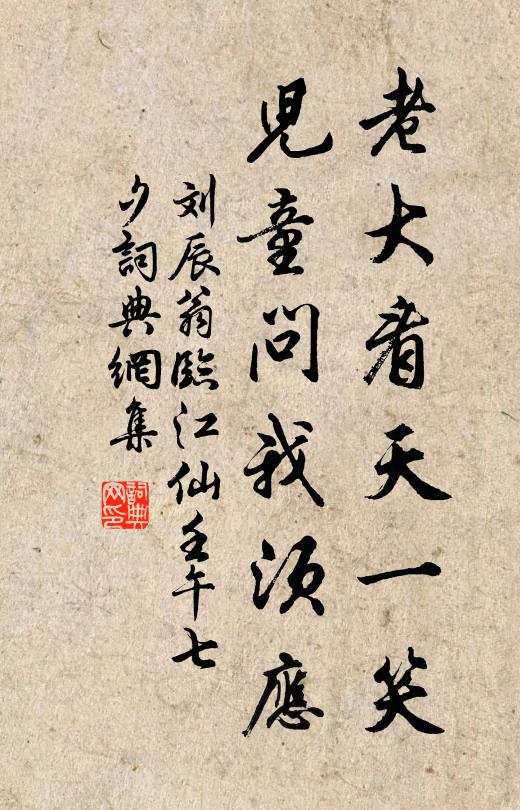 老大看天一笑
兒童問我須應
刘辰翁臨江仙壬午七
夕詞典網集
詞典
网印